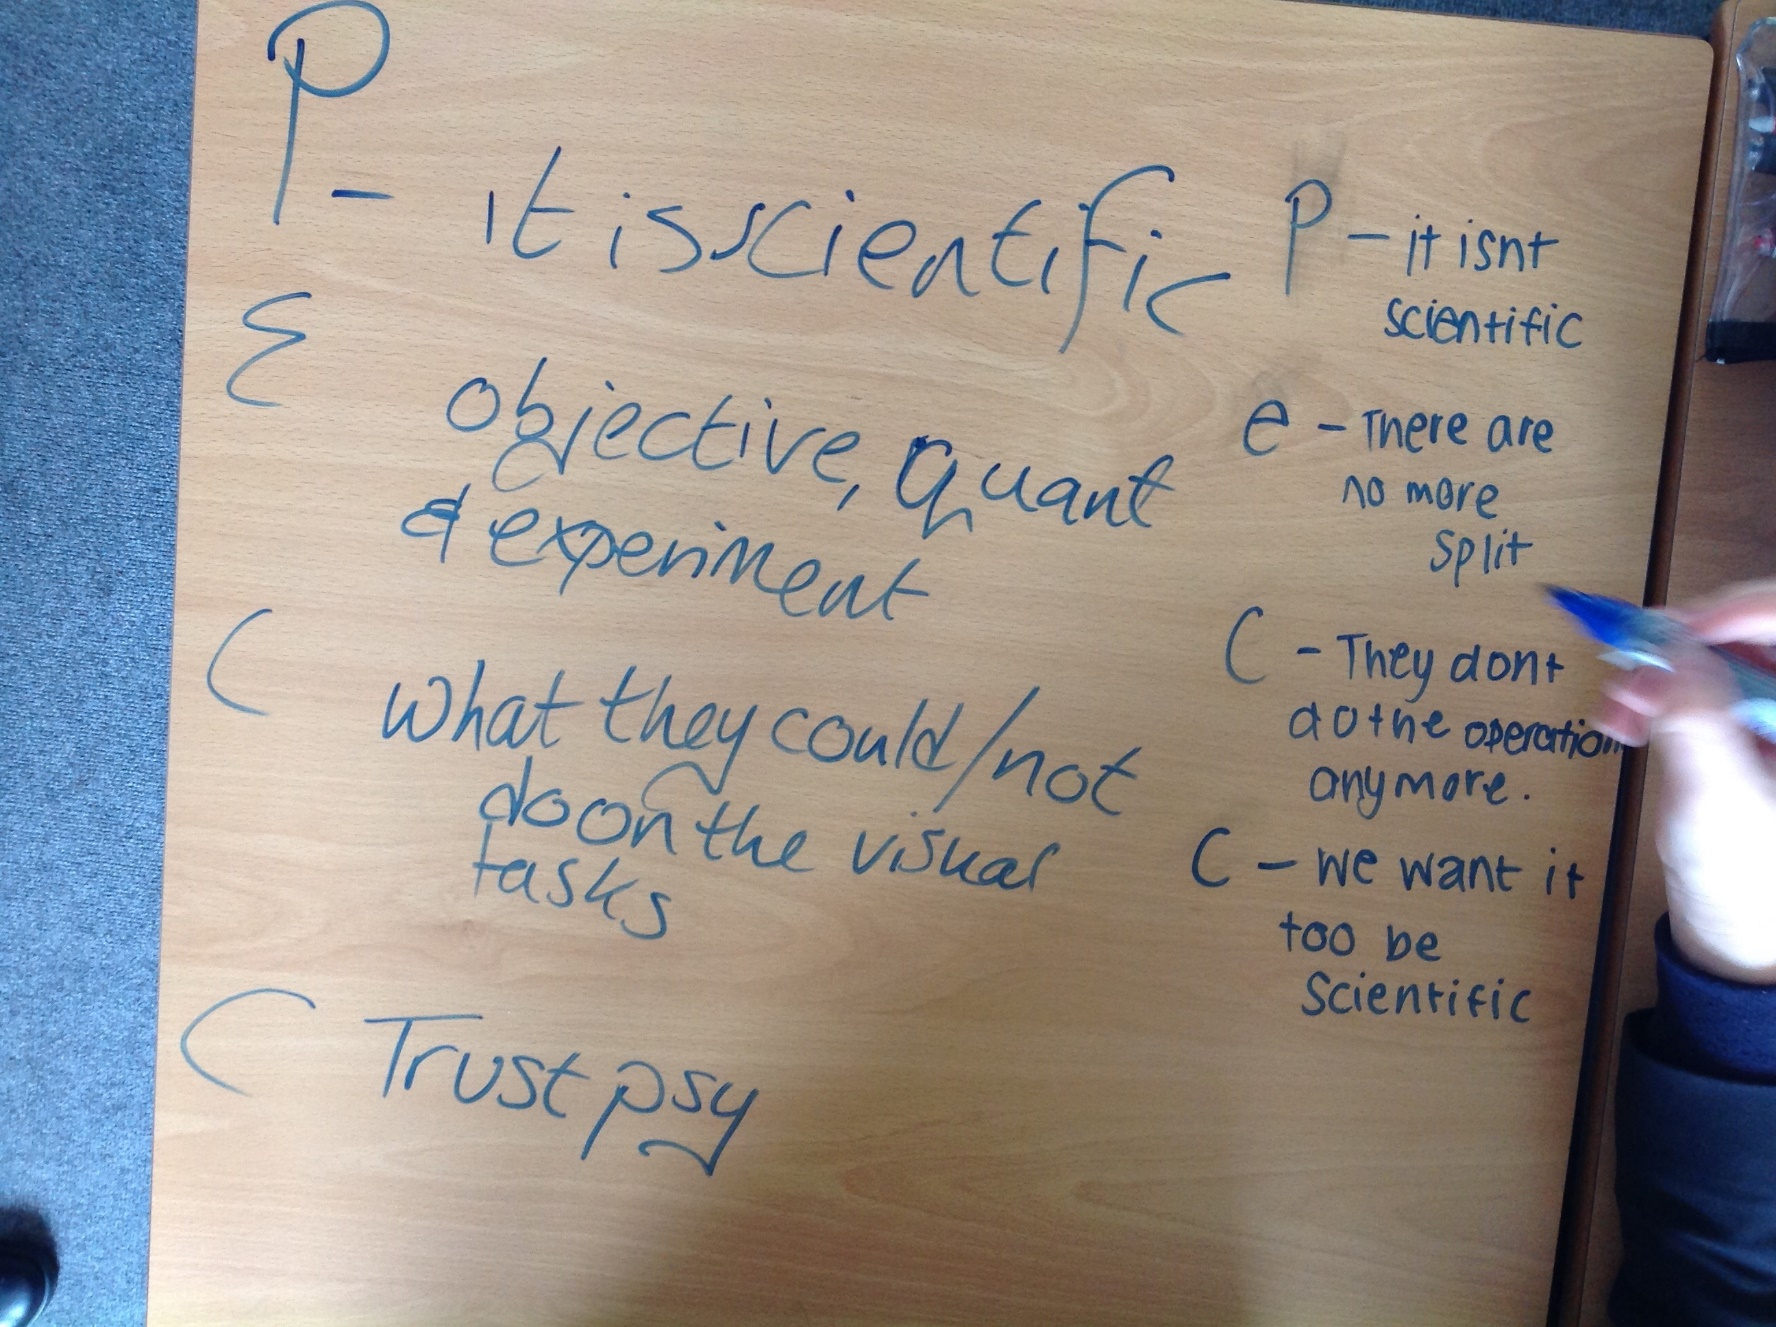 P - it is scientific
E objective, quant
& experiment
C what they could/not
do on the visual
tasks
C Trust psy
P - it isnt
scientific
e - There are
no more
split
C - They dont
do the operation
anymore.
C - we want it
too be
Scientific